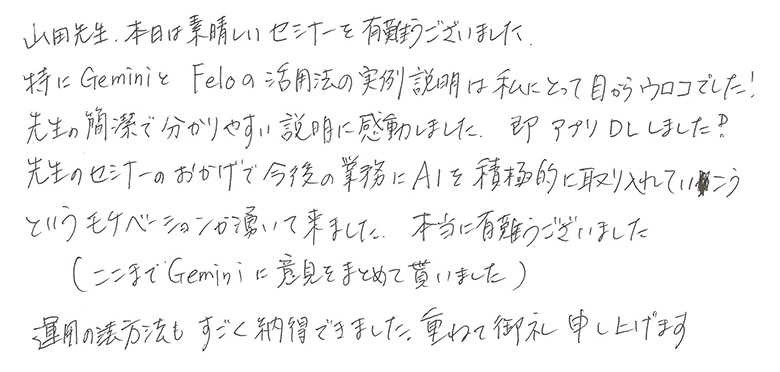 山田先生、本日は素晴しいセミナーを有難うございました。
特にGeminiと Feloの活用法の実例説明は私にとって目からウロコでした!
先生の簡潔で分かりやすい説明に感動しました。即アプリDLしました!
先生のセミナーのおかげで今後の業務にAIを積極的に取り入れていこう
というモチベーションが湧いて来ました。本当に有難うございました
(ここまでGeminiに意見をまとめて貰いました)
運用の方法も すごく納得できました。重ねて御礼申し上げます